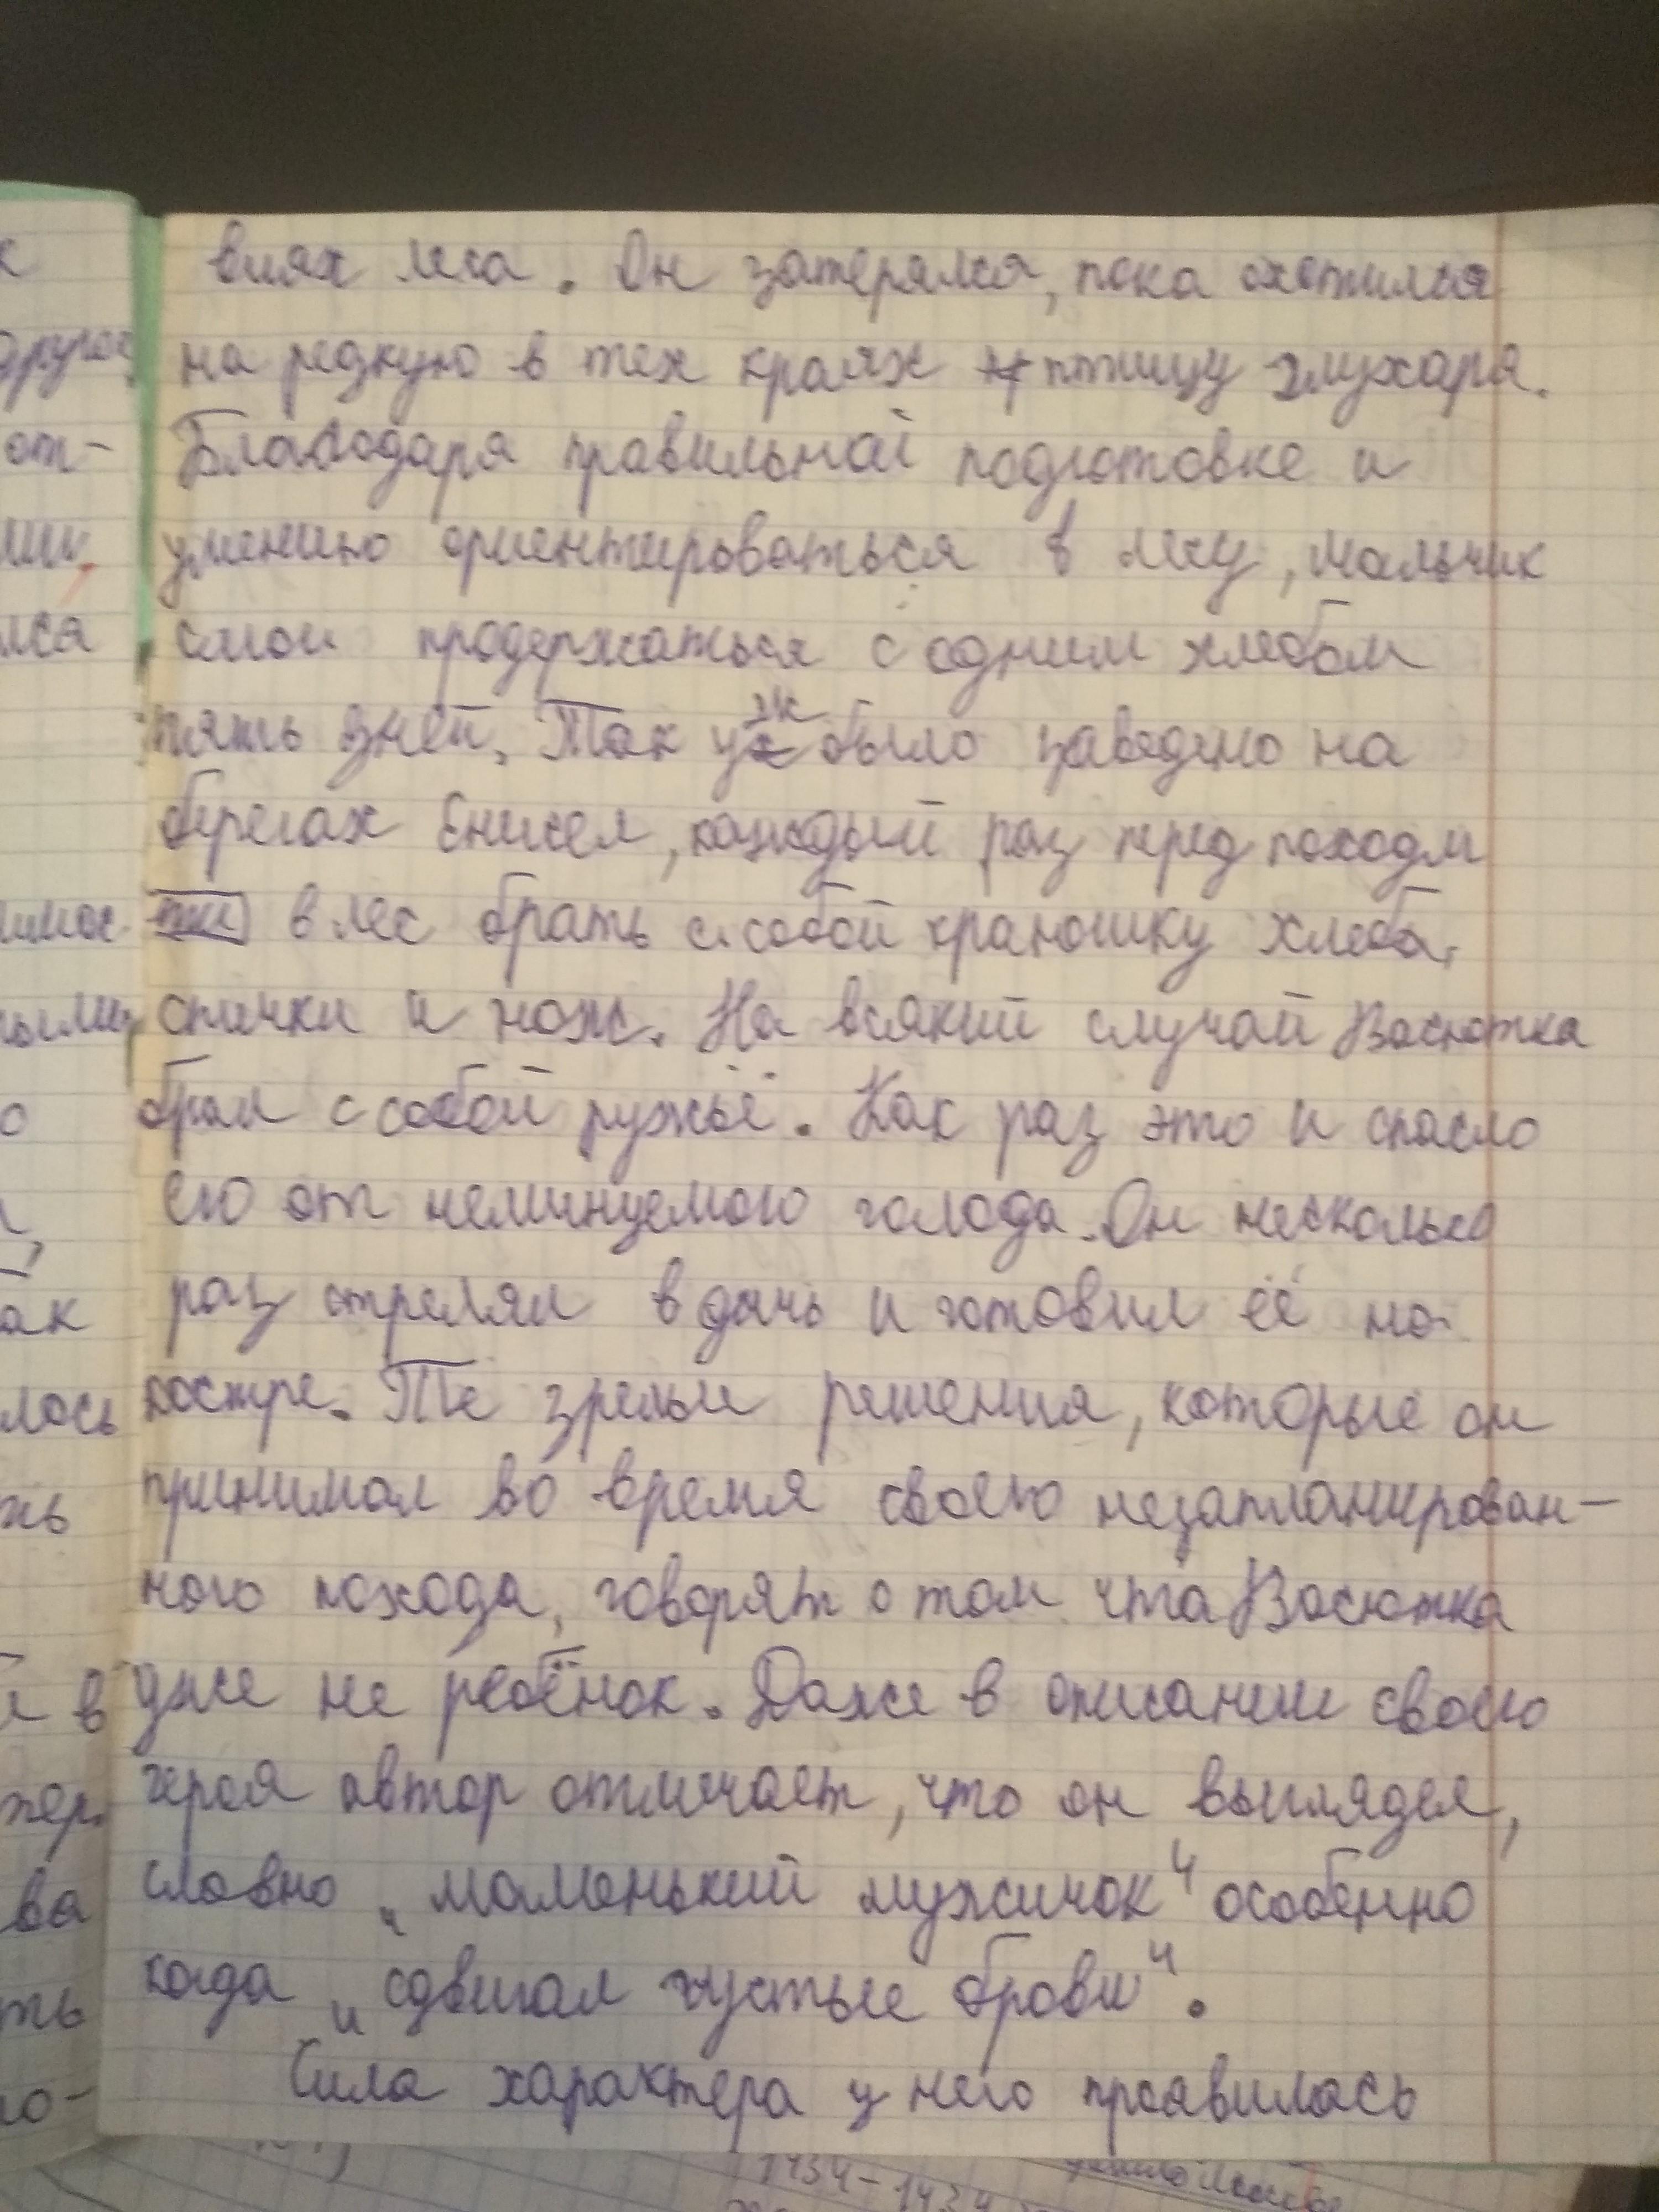 виях леса. Он затерялся, пока охотился
на редкую в тех краях птицу глухаря.
Благодаря правильной подготовке и
умению ориентироваться в лесу, мальчик
смог продержаться с одним хлебом
пять дней. Так уж было заведено на
берегах Енисея, каждый раз перед походом
в лес брать с собой краюшку хлеба,
спички и нож. На всякий случай Васютка
брал с собой ружьё. Как раз это и спасло
его от неминуемого голода. Он несколько
раз стрелял в дичь и готовил её на
костре. Те зрелые решения, которые он
принимал во время своего незапланирован-
ного похода, говорят о том что Васютка
уже не ребёнок. Даже в описании своего
героя автор отмечает, что он выглядел,
словно „маленький мужичок“ особенно
когда „сдвигал густые брови“.
Сила характера у него проявилась
1434-1434